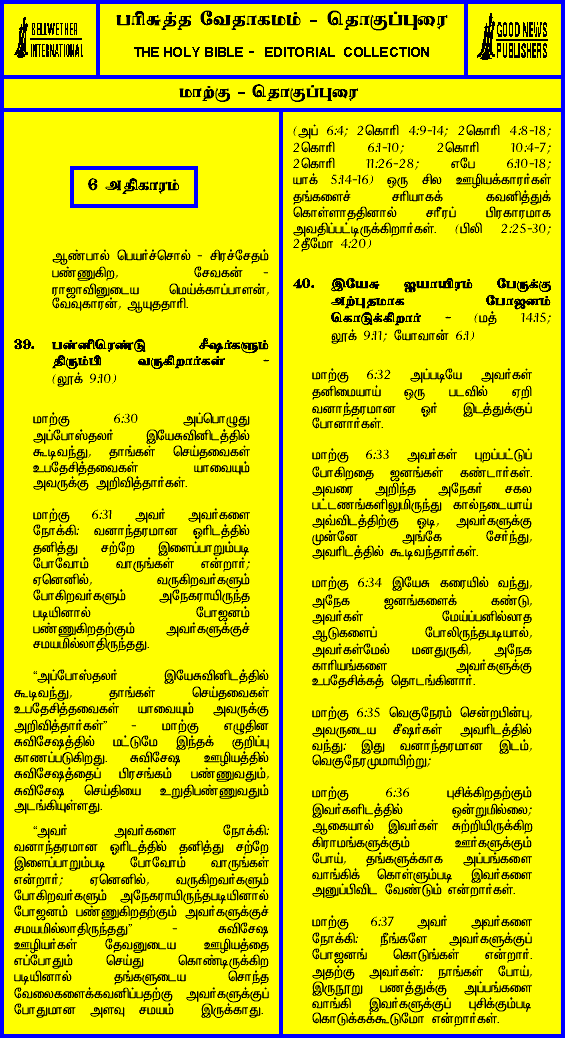 BELLWETHER
INTERNATIONAL
பரிசுத்த வேதாகமம் - தொகுப்புரை
THE HOLY BIBLE - EDITORIAL COLLECTION
GOOD NEWS
PUBLISHERS
மாற்கு - தொகுப்புரை
6 அதிகாரம்
ஆண்பால் பெயர்ச்சொல் - சிரச்சேதம்
பண்ணுகிற, சேவகன் -
ராஜாவினுடைய மெய்க்காப்பாளன்,
வேவுகாரன், ஆயுததாரி.
39. பன்னிரெண்டு சீஷர்களும்
திரும்பி வருகிறார்கள் -
(லூக் 9:10)
மாற்கு 6:30 அப்பொழுது
அப்போஸ்தலர் இயேசுவினிடத்தில்
கூடிவந்து, தாங்கள் செய்தவைகள்
உபதேசித்தவைகள் யாவையும்
அவருக்கு அறிவித்தார்கள்.
மாற்கு 6:31 அவர் அவர்களை
நோக்கி: வனாந்தரமான ஓரிடத்தில்
தனித்து சற்றே இளைப்பாறும்படி
போவோம் வாருங்கள் என்றார்;
ஏனெனில், வருகிறவர்களும்
போகிறவர்களும் அநேகராயிருந்த
படியினால் போஜனம்
பண்ணுகிறதற்கும் அவர்களுக்குச்
சமயமில்லாதிருந்தது.
“அப்போஸ்தலர் இயேசுவினிடத்தில்
கூடிவந்து, தாங்கள் செய்தவைகள்
உபதேசித்தவைகள் யாவையும் அவருக்கு
அறிவித்தார்கள்” - மாற்கு எழுதின
சுவிசேஷத்தில் மட்டுமே இந்தக் குறிப்பு
காணப்படுகிறது. சுவிசேஷ ஊழியத்தில்
சுவிசேஷத்தைப் பிரசங்கம் பண்ணுவதும்,
சுவிசேஷ செய்தியை உறுதிபண்ணுவதும்
அடங்கியுள்ளது.
“அவர் அவர்களை நோக்கி:
வனாந்தரமான ஓரிடத்தில் தனித்து சற்றே
இளைப்பாறும்படி போவோம் வாருங்கள்
என்றார்; ஏனெனில், வருகிறவர்களும்
போகிறவர்களும் அநேகராயிருந்தபடியினால்
போஜனம் பண்ணுகிறதற்கும் அவர்களுக்குச்
சமயமில்லாதிருந்தது” - சுவிசேஷ
ஊழியர்கள் தேவனுடைய ஊழியத்தை
எப்போதும் செய்து கொண்டிருக்கிற
படியினால் தங்களுடைய சொந்த
வேலைகளைக்கவனிப்பதற்கு அவர்களுக்குப்
போதுமான அளவு சமயம் இருக்காது.
(அப் 6:4; 2கொரி 4:9-14; 2கொரி 4:8-18;
2கொரி 6:1-10; 2கொரி 10:4-7;
2கொரி 11:26-28; எபே 6:10-18;
யாக் 5:14-16) ஒரு சில ஊழியக்காரர்கள்
தங்களைச் சரியாகக் கவனித்துக்
கொள்ளாததினால் சரீரப் பிரகாரமாக
அவதிப்பட்டிருக்கிறார்கள். (பிலி 2:25-30;
2தீமோ 4:20)
40. இயேசு ஐயாயிரம் பேருக்கு
அற்புதமாக போஜனம்
கொடுக்கிறார் - (மத் 14:15;
லூக் 9:11; யோவான் 6:1)
மாற்கு 6:32 அப்படியே அவர்கள்
தனிமையாய் ஒரு படவில் ஏறி
வனாந்தரமான ஓர் இடத்துக்குப்
போனார்கள்.
மாற்கு 6:33 அவர்கள் புறப்பட்டுப்
போகிறதை ஜனங்கள் கண்டார்கள்.
அவரை அறிந்த அநேகர் சகல
பட்டணங்களிலுமிருந்து கால்நடையாய்
அவ்விடத்திற்கு ஓடி, அவர்களுக்கு
முன்னே அங்கே சேர்ந்து,
அவரிடத்தில் கூடிவந்தார்கள்.
மாற்கு 6:34 இயேசு கரையில் வந்து,
அநேக ஜனங்களைக் கண்டு,
அவர்கள் மேய்ப்பனில்லாத
ஆடுகளைப் போலிருந்தபடியால்,
அவர்கள்மேல் மனதுருகி, அநேக
காரியங்களை அவர்களுக்கு
உபதேசிக்கத் தொடங்கினார்.
மாற்கு 6:35 வெகுநேரம் சென்றபின்பு,
அவருடைய சீஷர்கள் அவரிடத்தில்
வந்து: இது வனாந்தரமான இடம்,
வெகுநேரமுமாயிற்று;
மாற்கு 6:36 புசிக்கிறதற்கும்
இவர்களிடத்தில் ஒன்றுமில்லை;
ஆகையால் இவர்கள் சுற்றியிருக்கிற
கிராமங்களுக்கும் ஊர்களுக்கும்
போய், தங்களுக்காக அப்பங்களை
வாங்கிக் கொள்ளும்படி இவர்களை
அனுப்பிவிட வேண்டும் என்றார்கள்.
மாற்கு 6:37 அவர் அவர்களை
நோக்கி: நீங்களே அவர்களுக்குப்
போஜனங் கொடுங்கள் என்றார்.
அதற்கு அவர்கள்: நாங்கள் போய்,
இருநூறு பணத்துக்கு அப்பங்களை
வாங்கி இவர்களுக்குப் புசிக்கும்படி
கொடுக்கக்கூடுமோ என்றார்கள்.